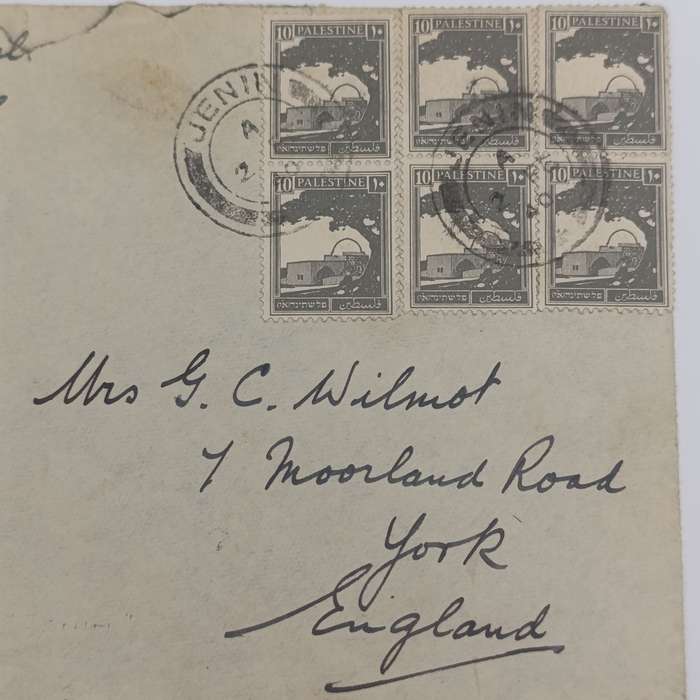 10 PALESTINE ١٠
10 PALESTINE ١٠
10 PALESTINE ١٠
פלשתינה א״י فلسطين
פלשתינה א״י فلسطين
פלשתינה א״י فلسطين
10 PALESTINE ١٠
10 PALESTINE ١٠
10 PALESTINE ١٠
פלשתינה א״י فلسطين
פלשתינה א״י فلسطين
פלשתינה א״י فلسطين
JENIN
A
2
JENIN
A
2
40
Mrs G. C. Wilmot
7 Moorland Road
York
England